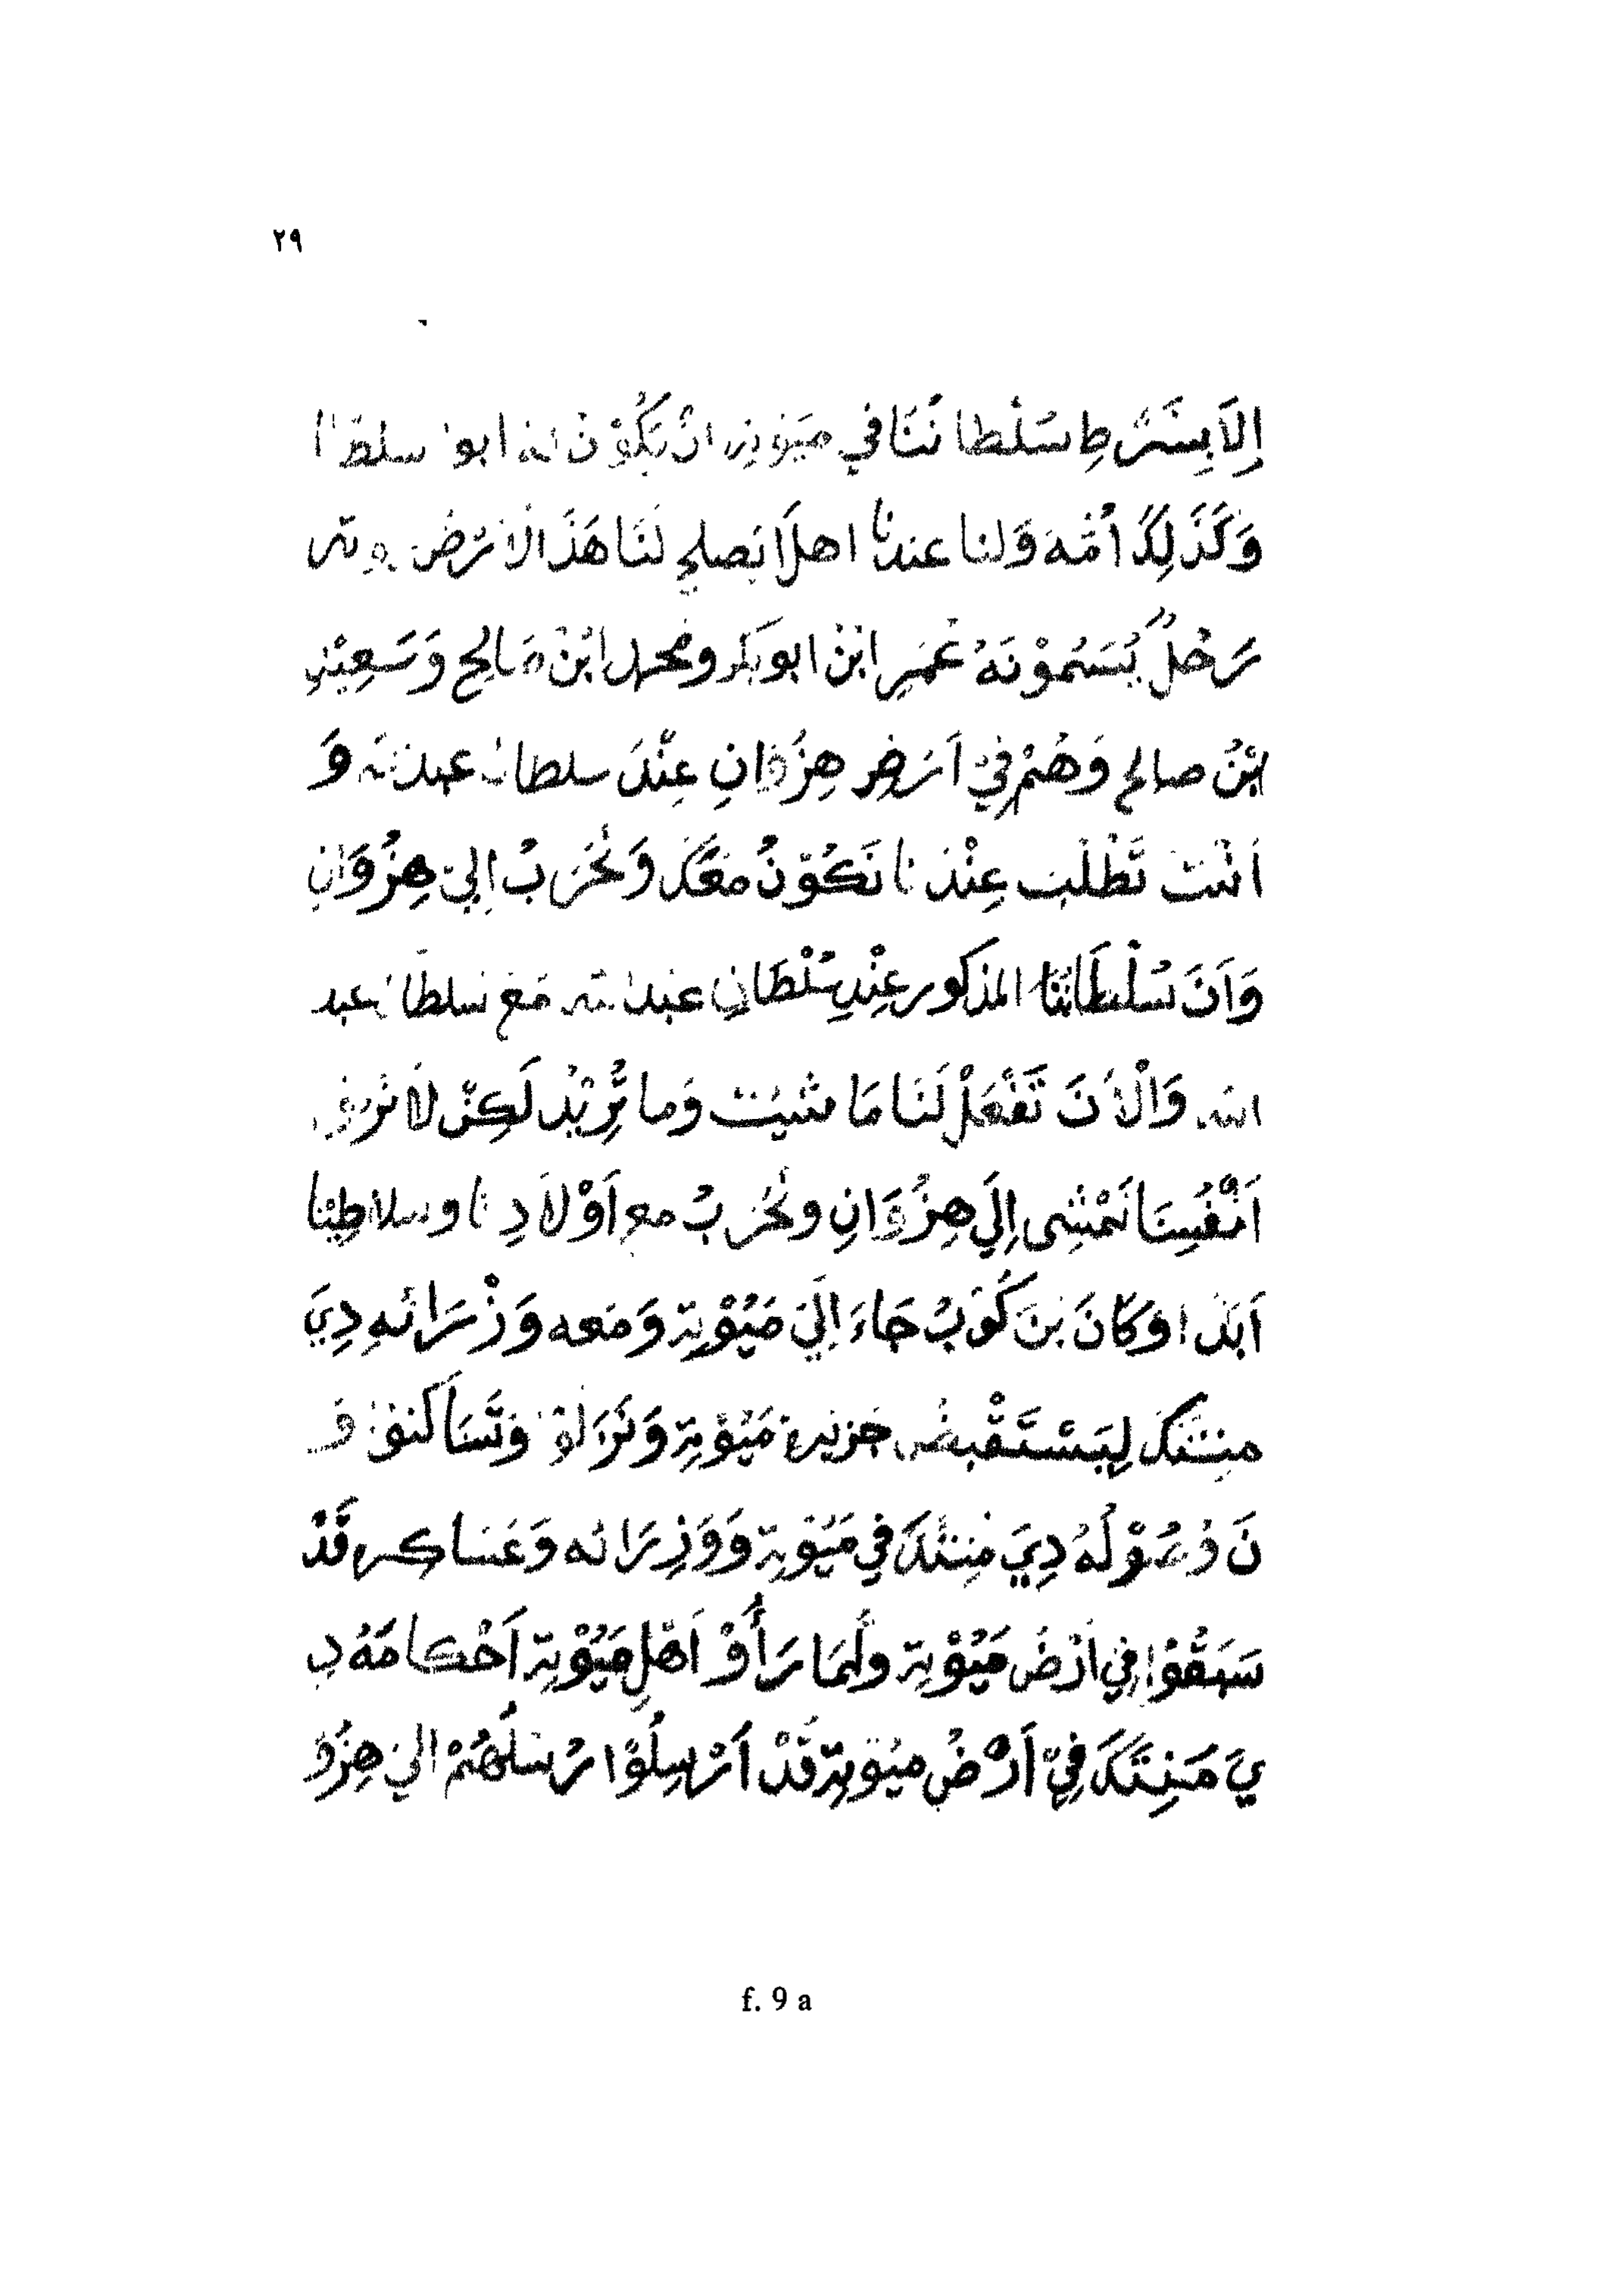 ٢٩
إِلَا بِشَرْطِ سُلْطَانُنَا فِي مَيَوْتِه اَنْ يَكُوْنَ لَهُ ابو سلطانا
وَكَذَلِكَ اُمَّهَ وَلنا عندنا اهلَا يَصلح لَنَا هَذَ الْاَرْضِ
رَجُلٌ يُسَمُوْنَهُ عُمَرِ ابْنْ ابو بكر ومحمد ابْنْ صَالِح وَسَعِيْدِ
بْنُ صالح وَهُمْ فِيْ اَرَضِ هِزُوَانِ عِنْدَ سلطان عبدالله وَ
اَنْتَ تَطْلُب عِنْدَنا نَكُوْنُ مَعَكَ وَنَحْرَبُ اِلِيّ هِزُوَانِ
وَاَنَ سُلْطَانُنَا المذكور عِنْدِ سُلْطَانِ عَبدالله مَعَ سُلطَان عبد
الله وَالْاَنَ تَفْعَلْ لَنَا مَا شئت وَما تُرِيْدُ لَكِنْ لَا نُرِيْدُ
اَنْفُسِنَا نَمْشِى اِلَي هِزُوَانِ ونَحْرَبُ مع اَوْلَادِنا وسلاطِيْنا
اَبَدَا وَكَانَ بَنَ كُوَبُ جَاءَ اِلَيَ مَيُوْتِة وَمَعه وَزْرَرائهِ دِيَ
منتنكَ لِيَسْتَقْبضُ جَزيرة مَيُوْتِة وَنَزَلُوْ وَتَسَاكَنوْ وَ
نَ دُعُوْلَهُ دِيَ مَنِتَنكَ فِي مَيُوْتِة وَوَزِرَائه وَعَسَاكِره قَدْ
سَبَقُوْا فِي اَرْضُ مَيُوْتِة ولَمَا رَأَوْ اَهْلِ مَيُوْتِة اَحْكامَهُ دِ
يَ مَنِتَنَكَ فِيْ اَرْضُ ميُوْتِة قَدْ اَرْسِلُوْا رُسُلَهُمْ الي هِزُوَ
f. 9 a